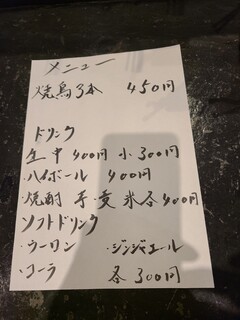 メニュー
焼鳥3本 450円
ドリンク
生 中400円 小300円
・ハイボール 400円
・焼酎 芋・麦 米各400円
ソフトドリンク
・ウーロン ・ジンジャエール
・コーラ 各300円